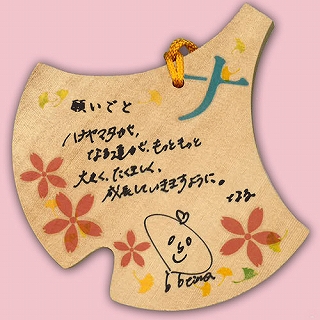 願いごと
ハナヤマタが、
なる道が、もっともっと
大きく、たくましく、
成長していきますように。